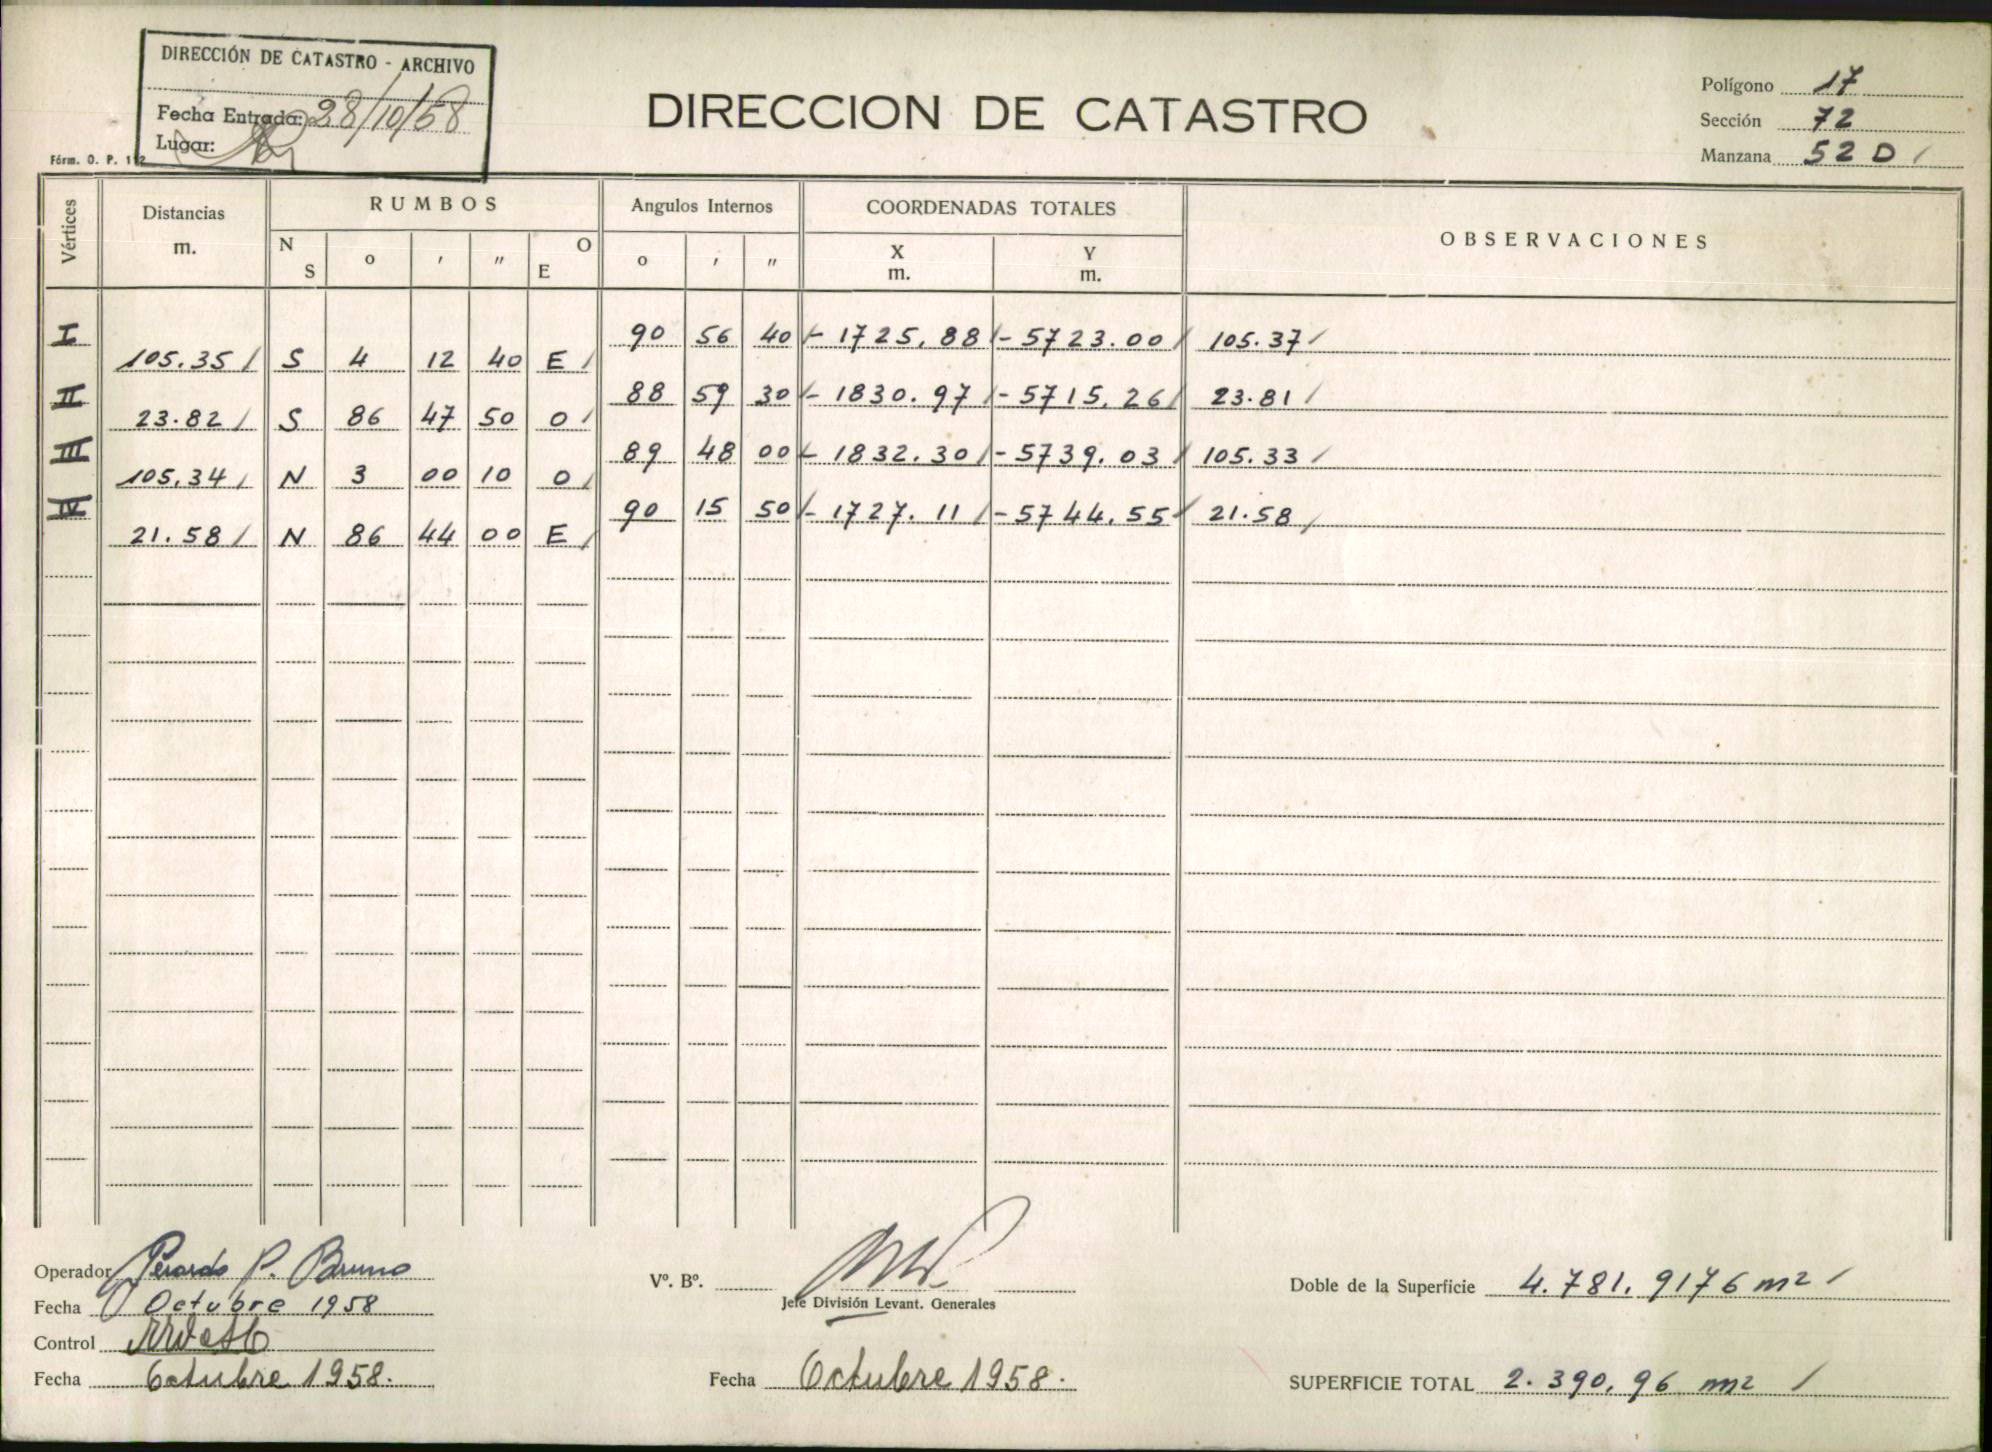 DIRECCIÓN DE CATASTRO - ARCHIVO
Fecha Entrada: 28/10/58
Lugar:
Fórm. O. P. 112
DIRECCION DE CATASTRO
Polígono 17
Sección 72
Manzana 52 D /
Vértices Distancias m. RUMBOS Angulos Internos COORDENADAS TOTALES OBSERVACIONES
N S o ' " O E o ' " X m. Y m.
I 90 56 40 /- 1725.88 /- 5723.00 / 105.37 /
105.35 / S 4 12 40 E /
II 88 59 30 /- 1830.97 /- 5715.26 / 23.81 /
23.82 / S 86 47 50 O /
III 89 48 00 /- 1832.30 /- 5739.03 / 105.33 /
105.34 / N 3 00 10 O /
IV 90 15 50 /- 1727.11 /- 5744.55 / 21.58 /
21.58 / N 86 44 00 E /
Operador P. Bruno
Fecha Octubre 1958
Control
Fecha Octubre 1958.
Vº. Bº.
Jefe División Levant. Generales
Fecha Octubre 1958.
Doble de la Superficie 4.781.9176 m2 /
SUPERFICIE TOTAL 2.390.96 m2 /